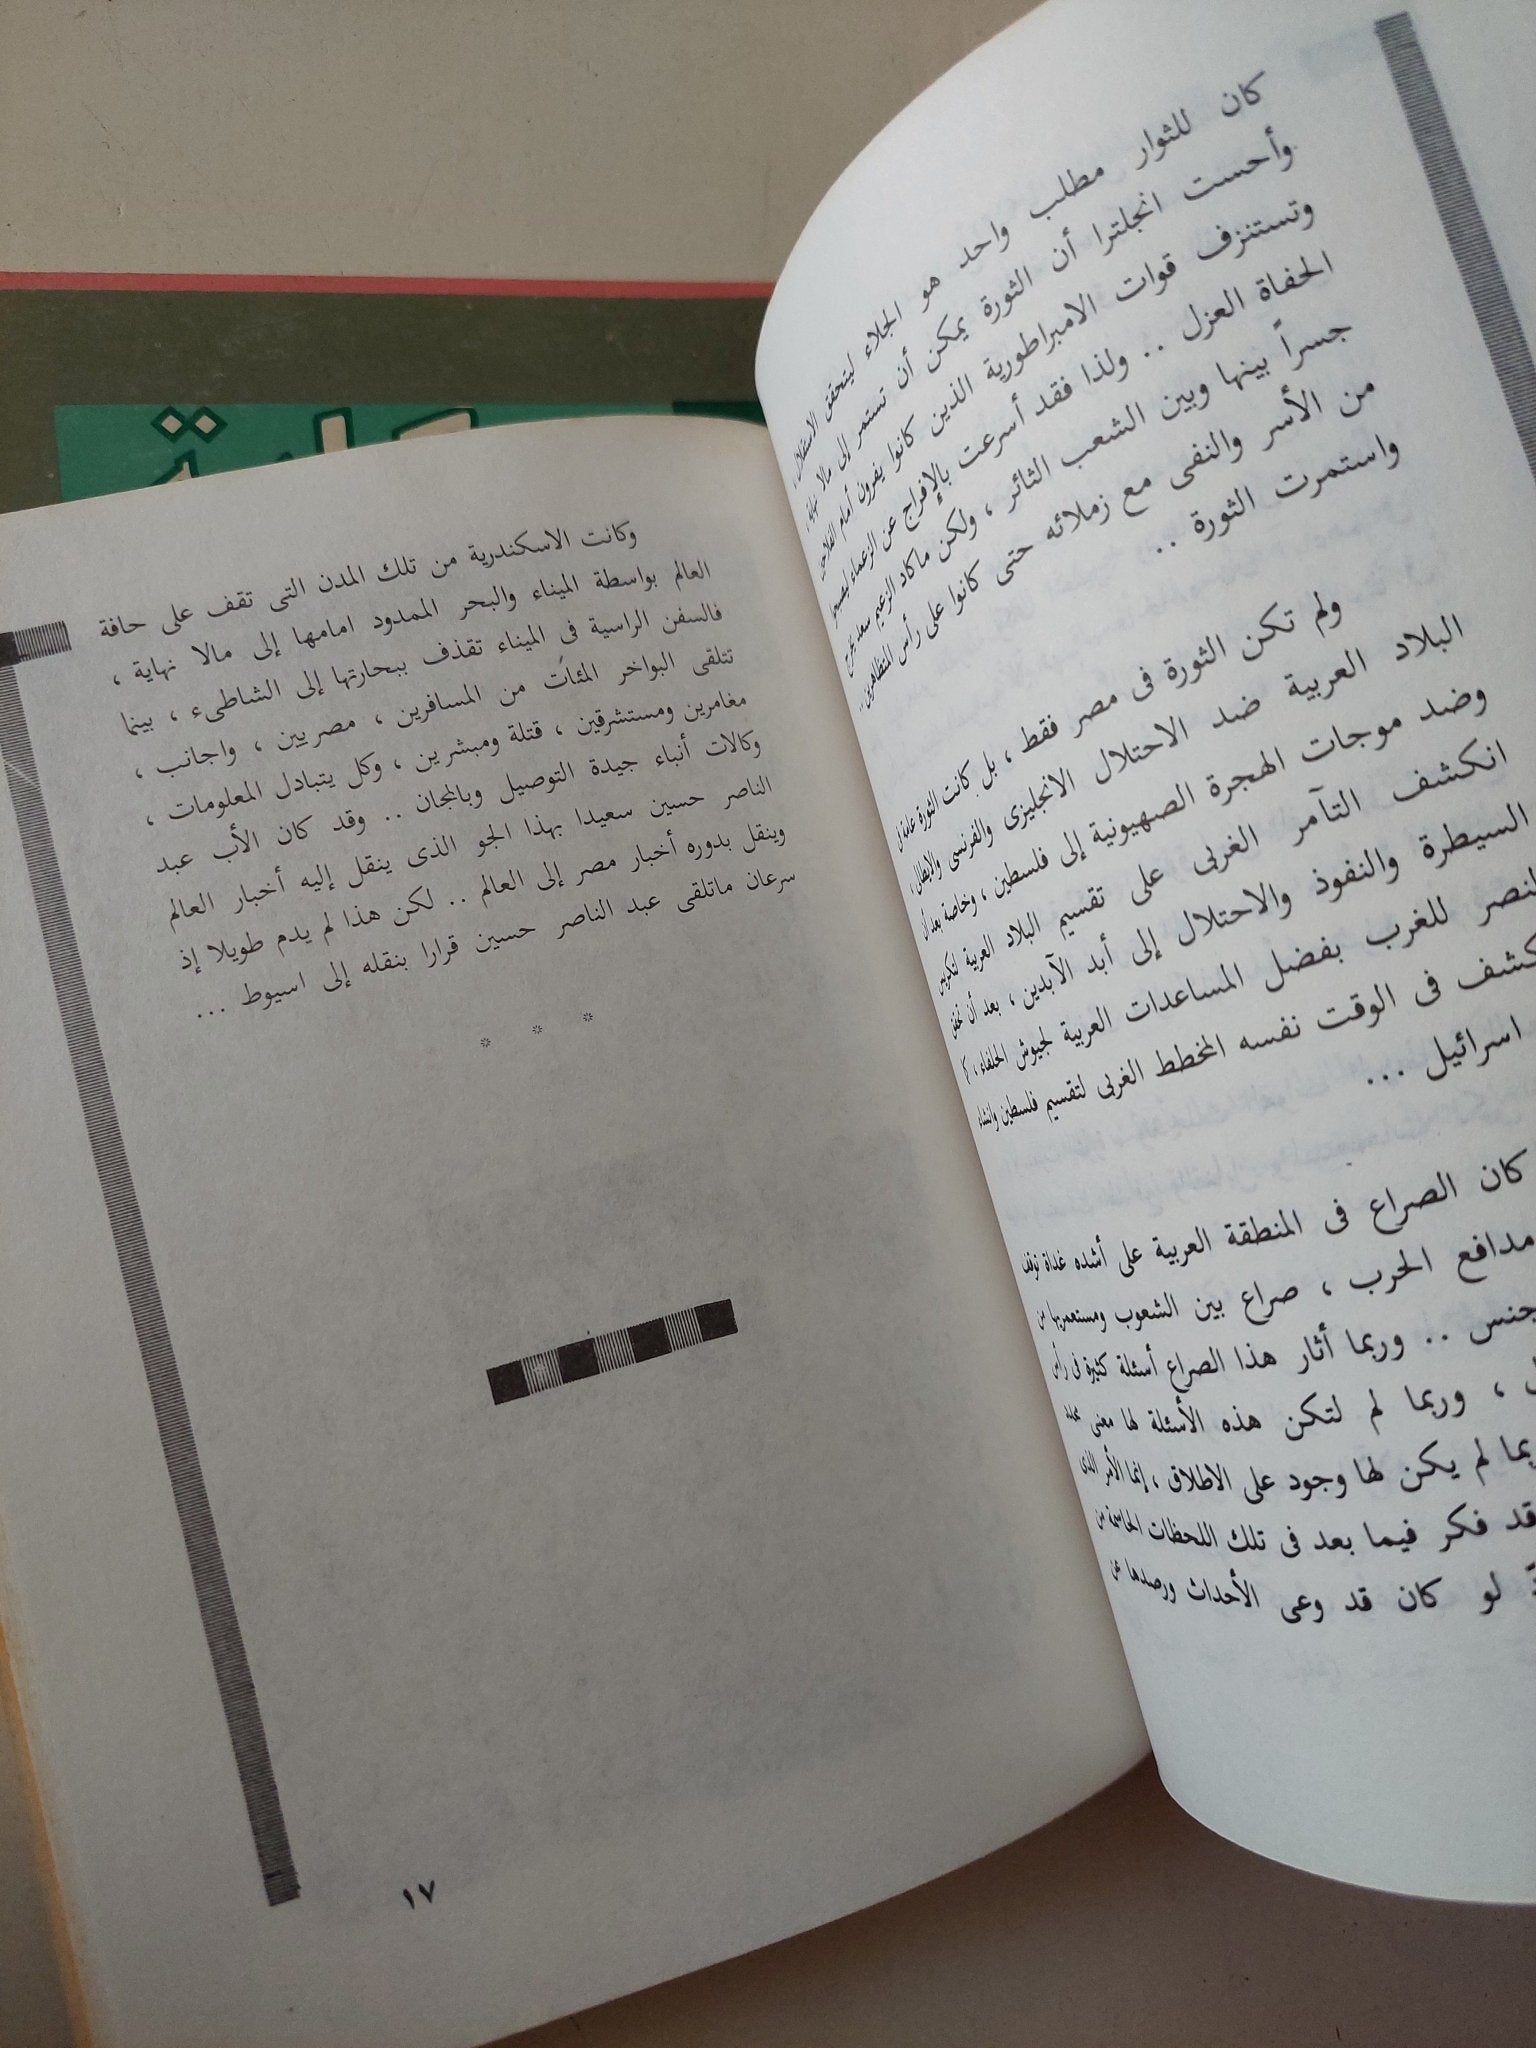 كان للثوار مطلب واحد هو الجلاء ليتحقق الاستقلال،
وأحست انجلترا أن الثورة يمكن أن تستمر إلى مالا نهاية،
وتستنزف قوات الامبراطورية الذين كانوا يفرون أمام الفلاحين
الحفاة العزل .. ولذا فقد أسرعت بالإفراج عن الزعماء ليصبحوا
جسراً بينها وبين الشعب الثائر ، ولكن ماكاد الزعيم سعد يخرج
من الأسر والنفى مع زملائه حتى كانوا على رأس المتظاهرين ..
واستمرت الثورة ..
ولم تكن الثورة فى مصر فقط ، بل كانت الثورة عامة فى
البلاد العربية ضد الاحتلال الانجليزى والفرنسى والايطالى ،
وضد موجات الهجرة الصهيونية إلى فلسطين ، وخاصة بعد أن
انكشف التآمر الغربى على تقسيم البلاد العربية لتكريس
السيطرة والنفوذ والاحتلال إلى أبد الآبدين ، بعد أن تحقق
النصر للغرب بفضل المساعدات العربية لجيوش الحلفاء ، كما
كشف فى الوقت نفسه المخطط الغربى لتقسيم فلسطين وانشاء
اسرائيل ...
كان الصراع فى المنطقة العربية على أشده غداة توقف
مدافع الحرب ، صراع بين الشعوب ومستعمريها من
جنس .. وربما أثار هذا الصراع أسئلة كثيرة فى رأس
، وربما لم لتكن هذه الأسئلة لها معنى
بما لم يكن لها وجود على الاطلاق ، إنما الأمر الذى
قد فكر فيما بعد فى تلك اللحظات الحاسمة من
لو كان قد وعى الأحداث ورصدها عن
وكانت الاسكندرية من تلك المدن التى تقف على حافة
العالم بواسطة الميناء والبحر الممدود امامها إلى مالا نهاية ،
فالسفن الراسية فى الميناء تقذف ببحارتها إلى الشاطىء ، بينما
تتلقى البواخر المئات من المسافرين ، مصريين ، واجانب ،
مغامرين ومستشرقين ، قتلة ومبشرين ، وكل يتبادل المعلومات ،
وكالات أنباء جيدة التوصيل وبالمجان .. وقد كان الأب عبد
الناصر حسين سعيدا بهذا الجو الذى ينقل إليه أخبار العالم
وينقل بدوره أخبار مصر إلى العالم .. لكن هذا لم يدم طويلا إذ
سرعان ماتلقى عبد الناصر حسين قرارا بنقله إلى اسيوط ...
* * *
١٧